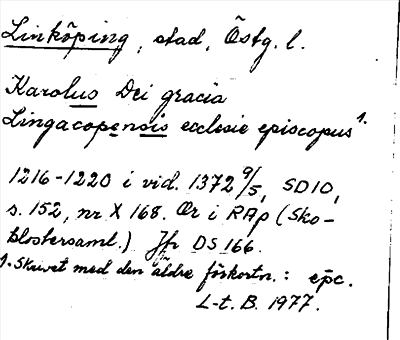 Linköping, stad, Östg. l.
Karolus Dei gracia
Lingacopensis ecclesie episcopus 1.
1216-1220 i vid. 1372 9/5, SD10,
s. 152, nr X 168. Or i RAp (Sko-
klostersaml.) Jfr DS 166.
1. Skrivet med den äldre förkortn.: epc.
L-t. B. 1977.